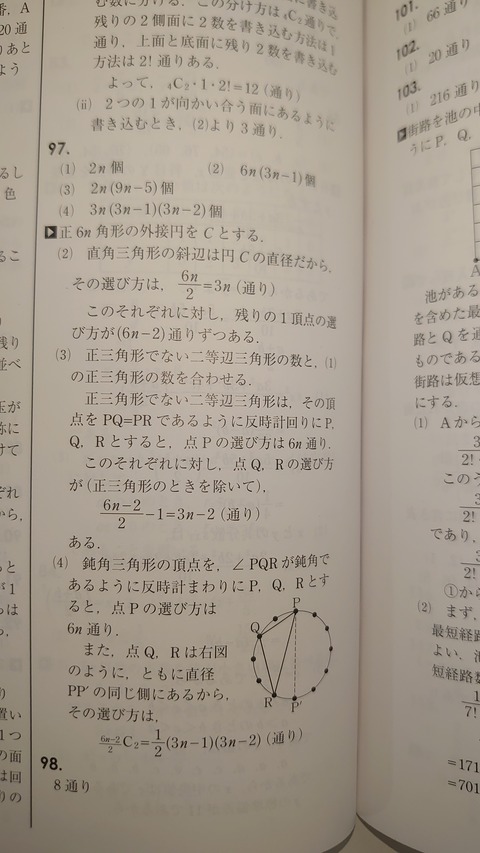 む数に分ける．この分け方は ₄C₂通りで，
残りの2側面に2数を書き込む方法は1
通り，上面と底面に残り2数を書き込む
方法は2!通りある．
よって，₄C₂・1・2!=12（通り）
(ii) 2つの1が向かい合う面にあるように
書き込むとき，(2)より3通り．
97.
(1) 2n個 (2) 6n(3n−1)個
(3) 2n(9n−5)個
(4) 3n(3n−1)(3n−2)個
▶正6n角形の外接円をCとする．
(2) 直角三角形の斜辺は円Cの直径だから，
その選び方は，6n/2=3n（通り）
このそれぞれに対し，残りの1頂点の選
び方が(6n−2)通りずつある．
(3) 正三角形でない二等辺三角形の数と，(1)
の正三角形の数を合わせる．
正三角形でない二等辺三角形は，その頂
点をPQ=PRであるように反時計回りにP，
Q，Rとすると，点Pの選び方は6n通り．
このそれぞれに対し，点Q，Rの選び方
が(正三角形のときを除いて)，
(6n−2)/2−1=3n−2（通り）
ある．
(4) 鈍角三角形の頂点を，∠PQRが鈍角で
あるように反時計まわりにP，Q，Rとす
ると，点Pの選び方は
6n通り．
また，点Q，Rは右図
のように，ともに直径
PP′の同じ側にあるから，
その選び方は，
P
Q
R
P′
(6n−2)/2 C₂=1/2(3n−1)(3n−2)（通り）
98.
8通り
101.
(1) 66通り
102.
(1) 20通り
103.
(1) 216通り
▶街路を池の中
うにP，Q，
A
池がある
を含めた最
路とQを通
ものである
街路は仮想
にする．
(1) Aから
3
2!
このう
3
2!
であり，
3
2!
①から
(2) まず，
最短経路
よい．池
短経路数
1
7!
=171
=701